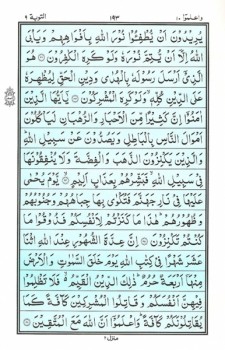 واعلموا ١٠ ١٩٣ التوبة ٩
يُرِيْدُوْنَ اَنْ يُّطْفِـُٔوْا نُوْرَ اللّٰهِ بِاَفْوَاهِهِمْ وَيَاْبَى
اللّٰهُ اِلَّآ اَنْ يُّتِمَّ نُوْرَهٗ وَلَوْ كَرِهَ الْكٰفِرُوْنَ ۝ هُوَ
الَّذِيْٓ اَرْسَلَ رَسُوْلَهٗ بِالْهُدٰى وَدِيْنِ الْحَقِّ لِيُظْهِرَهٗ
عَلَى الدِّيْنِ كُلِّهٖ وَلَوْ كَرِهَ الْمُشْرِكُوْنَ ۝ يٰٓاَيُّهَا الَّذِيْنَ
اٰمَنُوْٓا اِنَّ كَثِيْرًا مِّنَ الْاَحْبَارِ وَالرُّهْبَانِ لَيَاْكُلُوْنَ
اَمْوَالَ النَّاسِ بِالْبَاطِلِ وَيَصُدُّوْنَ عَنْ سَبِيْلِ اللّٰهِ
وَالَّذِيْنَ يَكْنِزُوْنَ الذَّهَبَ وَالْفِضَّةَ وَلَا يُنْفِقُوْنَهَا
فِيْ سَبِيْلِ اللّٰهِ فَبَشِّرْهُمْ بِعَذَابٍ اَلِيْمٍ ۝ يَّوْمَ يُحْمٰى
عَلَيْهَا فِيْ نَارِ جَهَنَّمَ فَتُكْوٰى بِهَا جِبَاهُهُمْ وَجُنُوْبُهُمْ
وَظُهُوْرُهُمْ هٰذَا مَا كَنَزْتُمْ لِاَنْفُسِكُمْ فَذُوْقُوْا مَا
كُنْتُمْ تَكْنِزُوْنَ ۝ اِنَّ عِدَّةَ الشُّهُوْرِ عِنْدَ اللّٰهِ اثْنَا
عَشَرَ شَهْرًا فِيْ كِتٰبِ اللّٰهِ يَوْمَ خَلَقَ السَّمٰوٰتِ وَالْاَرْضَ
مِنْهَآ اَرْبَعَةٌ حُرُمٌ ذٰلِكَ الدِّيْنُ الْقَيِّمُ فَلَا تَظْلِمُوْا
فِيْهِنَّ اَنْفُسَكُمْ وَقَاتِلُوا الْمُشْرِكِيْنَ كَآفَّةً كَمَا
يُقَاتِلُوْنَكُمْ كَآفَّةً وَاعْلَمُوْٓا اَنَّ اللّٰهَ مَعَ الْمُتَّقِيْنَ ۝
منزل ٢